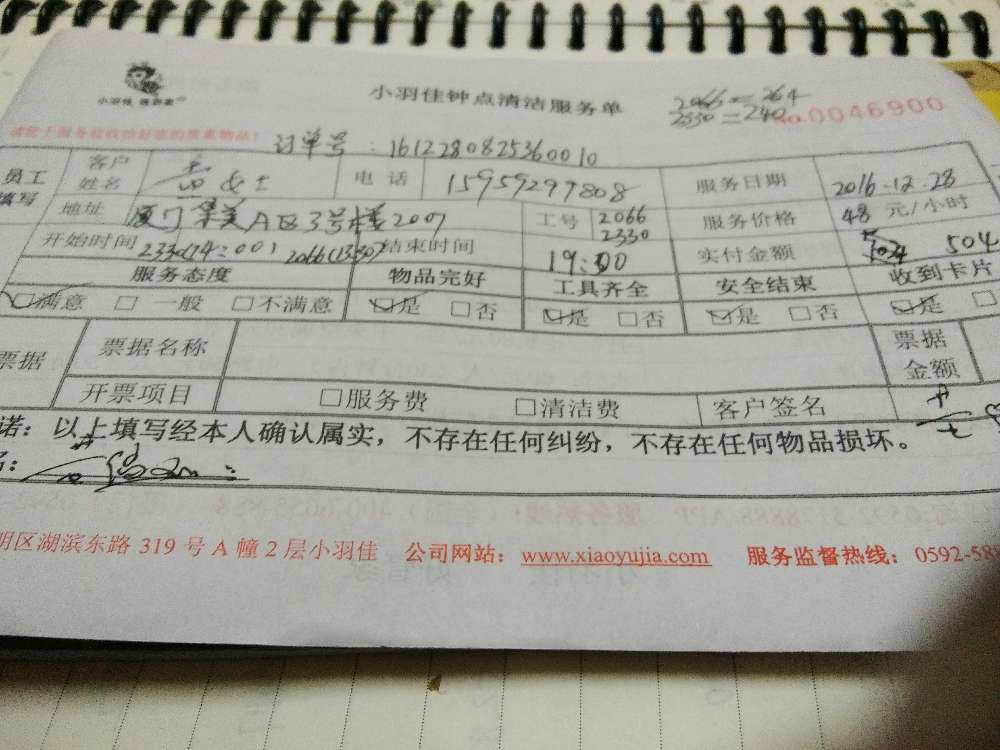 小羽佳
小羽佳钟点清洁服务单
2066=264
2330=240
No.0046900
订单号：1612280825360010
员工填写
客户姓名 女士 电话 15959297808 服务日期 2016.12.28
地址 厦门 A区3号楼2007 工号 2066 2330 服务价格 48 元/小时
开始时间 2330(14:00) 2066(13:30) 结束时间 19:00 实付金额 504
服务态度 物品完好 工具齐全 安全结束 收到卡片
满意 □ 一般 □不满意 是 □否 是 □否 是 □否 是 □
票据 票据名称 票据金额
开票项目 □服务费 □清洁费 客户签名
诺：以上填写经本人确认属实，不存在任何纠纷，不存在任何物品损坏。
明区湖滨东路 319 号 A 幢 2 层小羽佳 公司网站：www.xiaoyujia.com 服务监督热线：0592-588